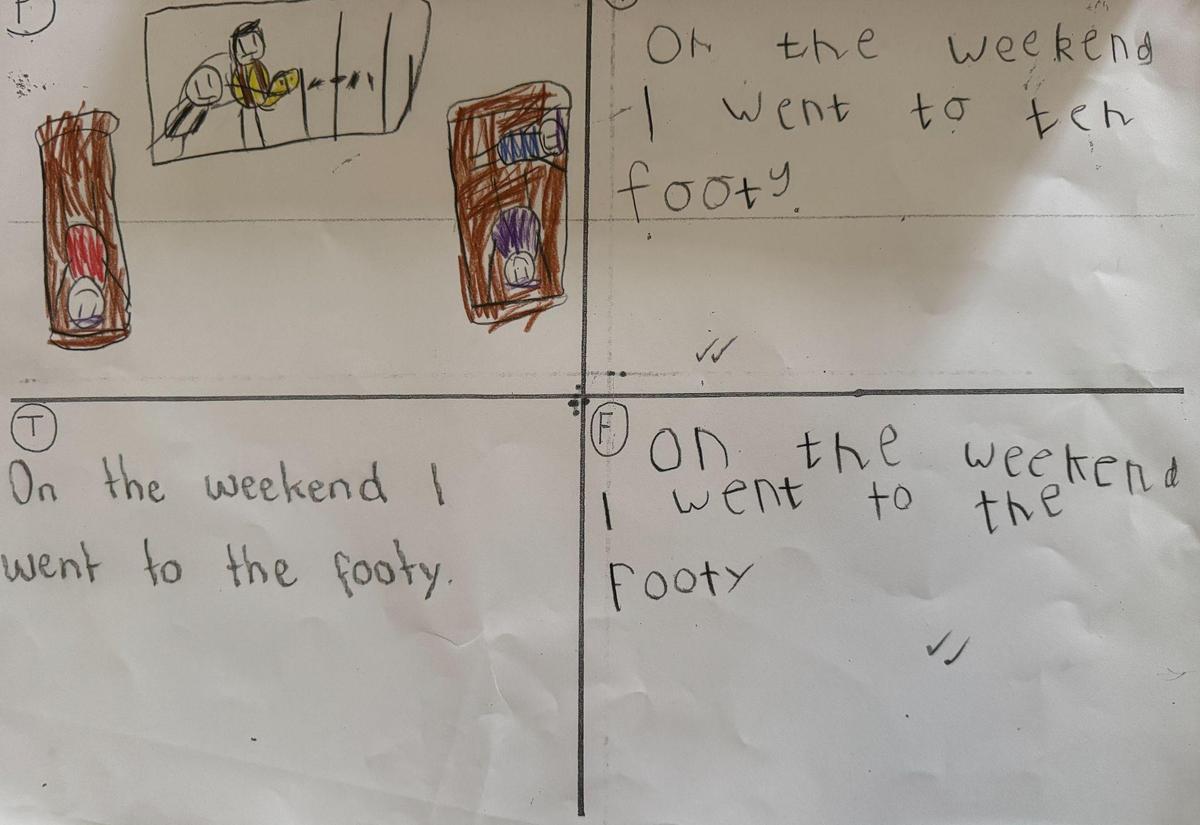 P
On the weekend
I went to teh
footy.
T
On the weekend I
went to the footy.
F
On the weekend
I went to the
Footy